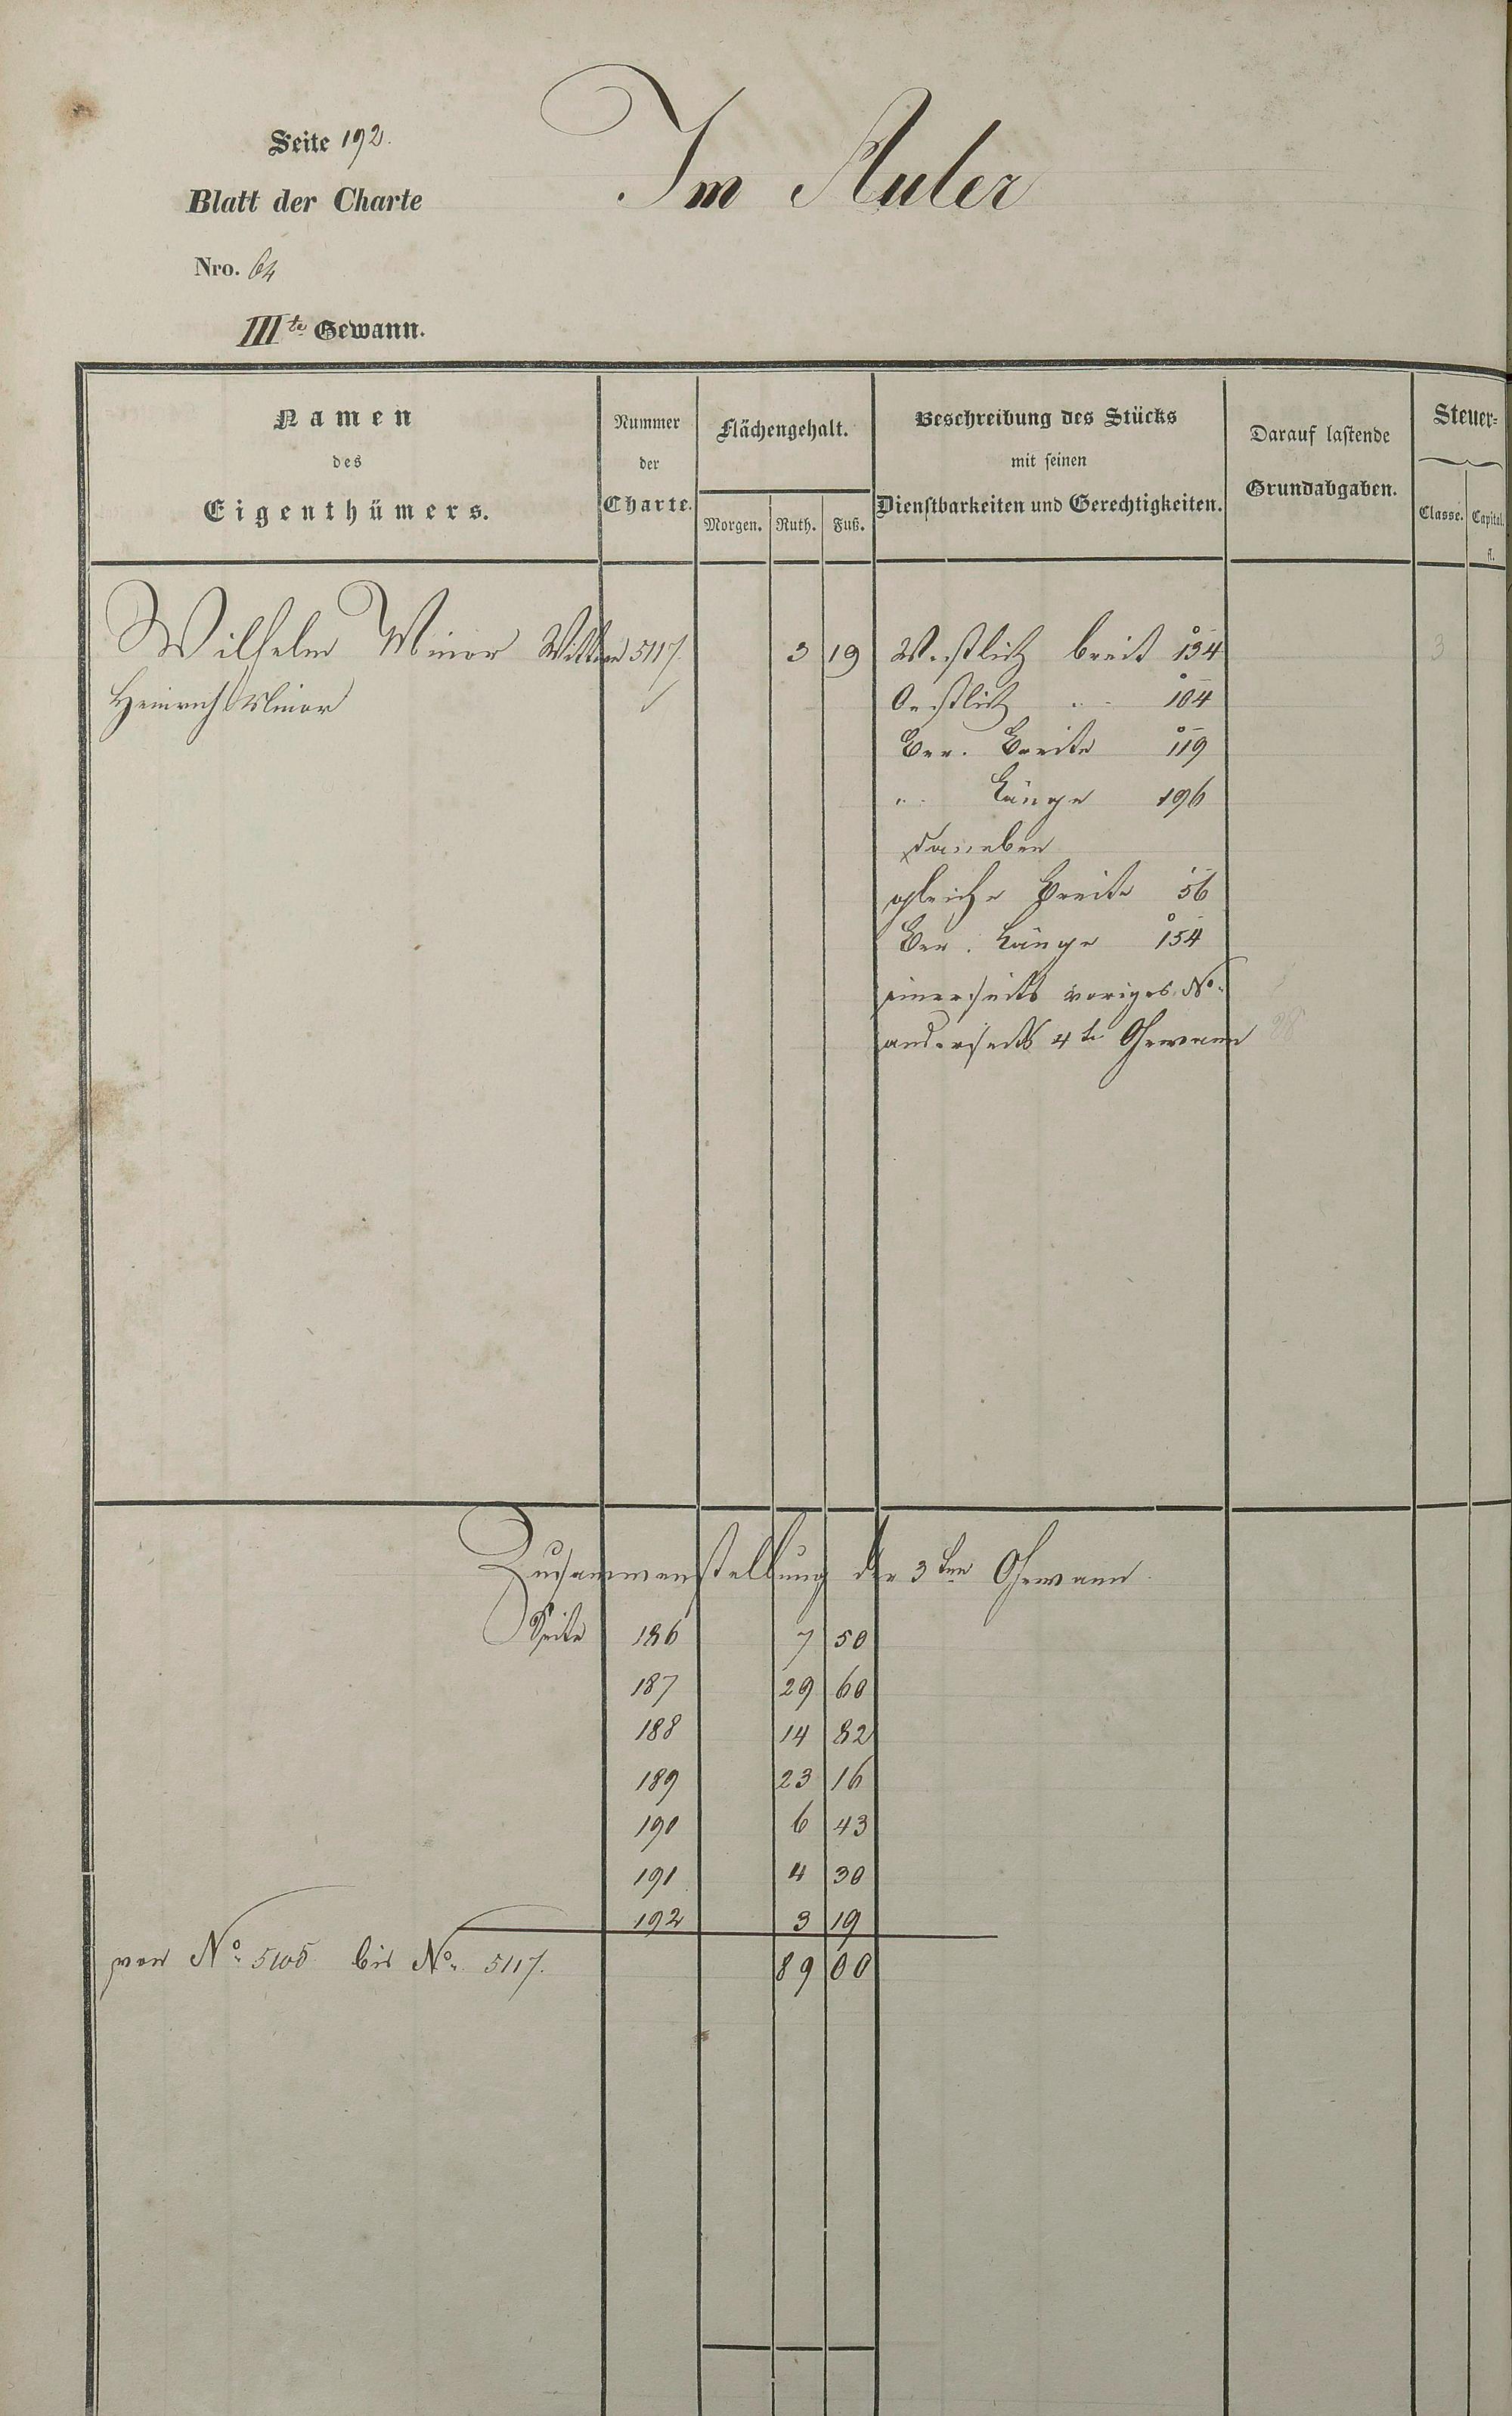 Seite 192.
Im Auler
Blatt der Charte
Nro. 64
IIIte Gewann.
Namen
des
Eigenthümers.
Nummer
der
Charte.
Flächengehalt.
Morgen. Ruth. Fuß.
Beschreibung des Stücks
mit seinen
Dienstbarkeiten und Gerechtigkeiten.
Darauf lastende
Grundabgaben.
Steuer-
Classe. Capital.
fl.
Wilhelm Minor Wittwe 5117. 3 19 Westlich breit 134 3
Heinrich Minor Oestlich " 104
Ver. Breite 119
" Länge 196
daneben
gleiche Breite 56
Ver. Länge 154
einerseits voriges No.
anderseits 4te Gewann
Zusammenstellung der 3ten Gewann.
Seite 186 7 50
187 29 60
188 14 82
189 23 16
190 6 43
191 4 30
192 3 19
von No. 5105 bis No. 5117. 89 00